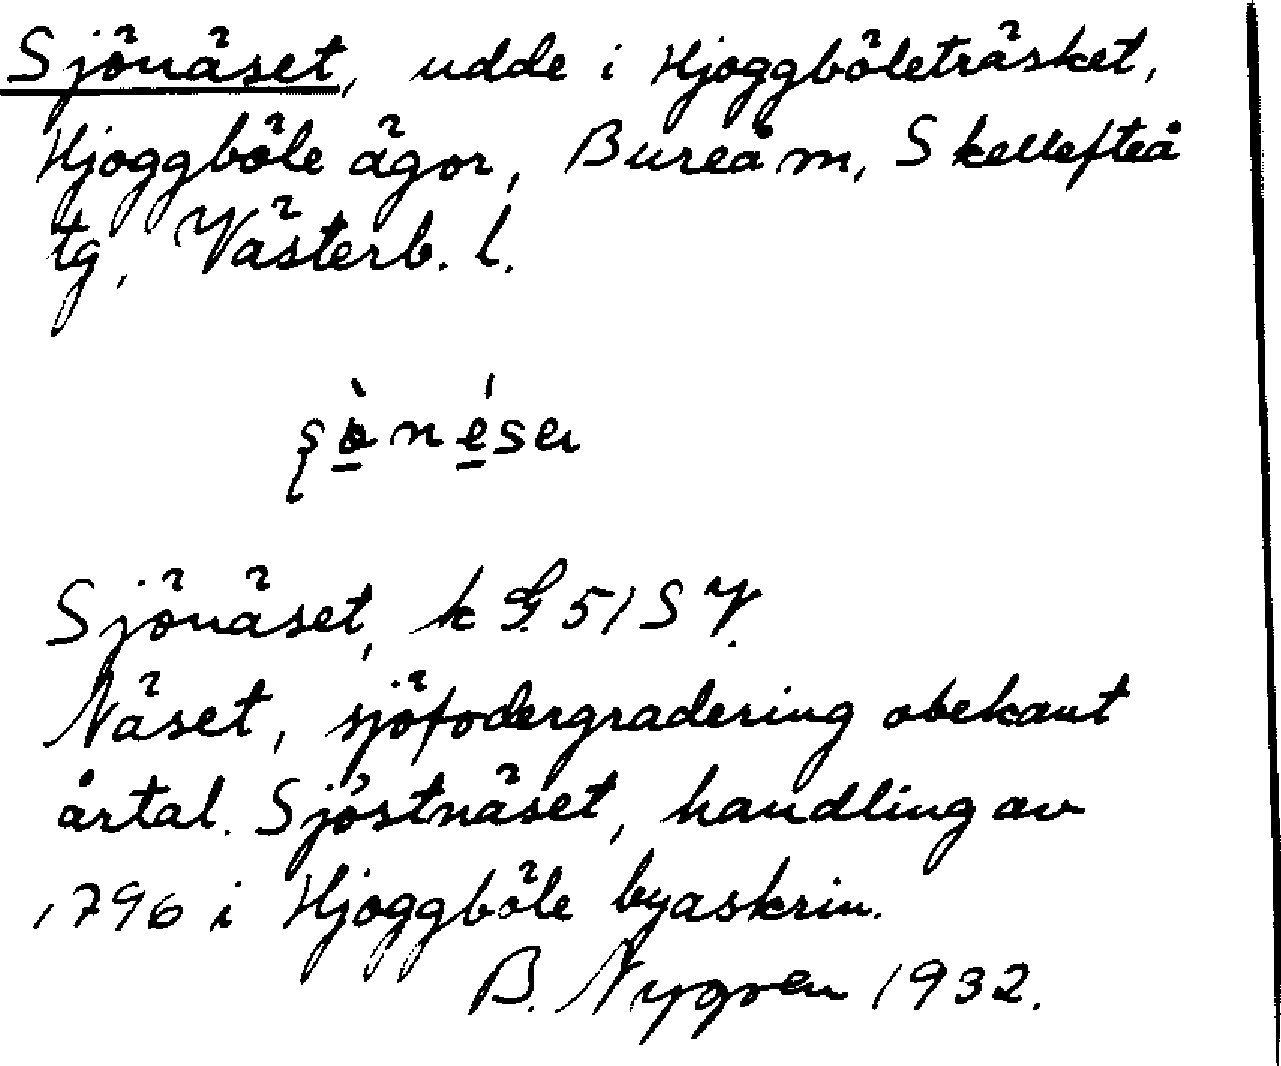 Sjönäset, udde i Hjoggböleträsket,
Hjoggböle ägor, Bureå m, Skellefteå
tg, Västerb. l.
Sjönäset, k G 51 S V.
Näset, sjöfodergradering obekant
årtal. Sjöstnäset, handling av
1796 i Hjoggböle byaskrin.
B. Nygren 1932.